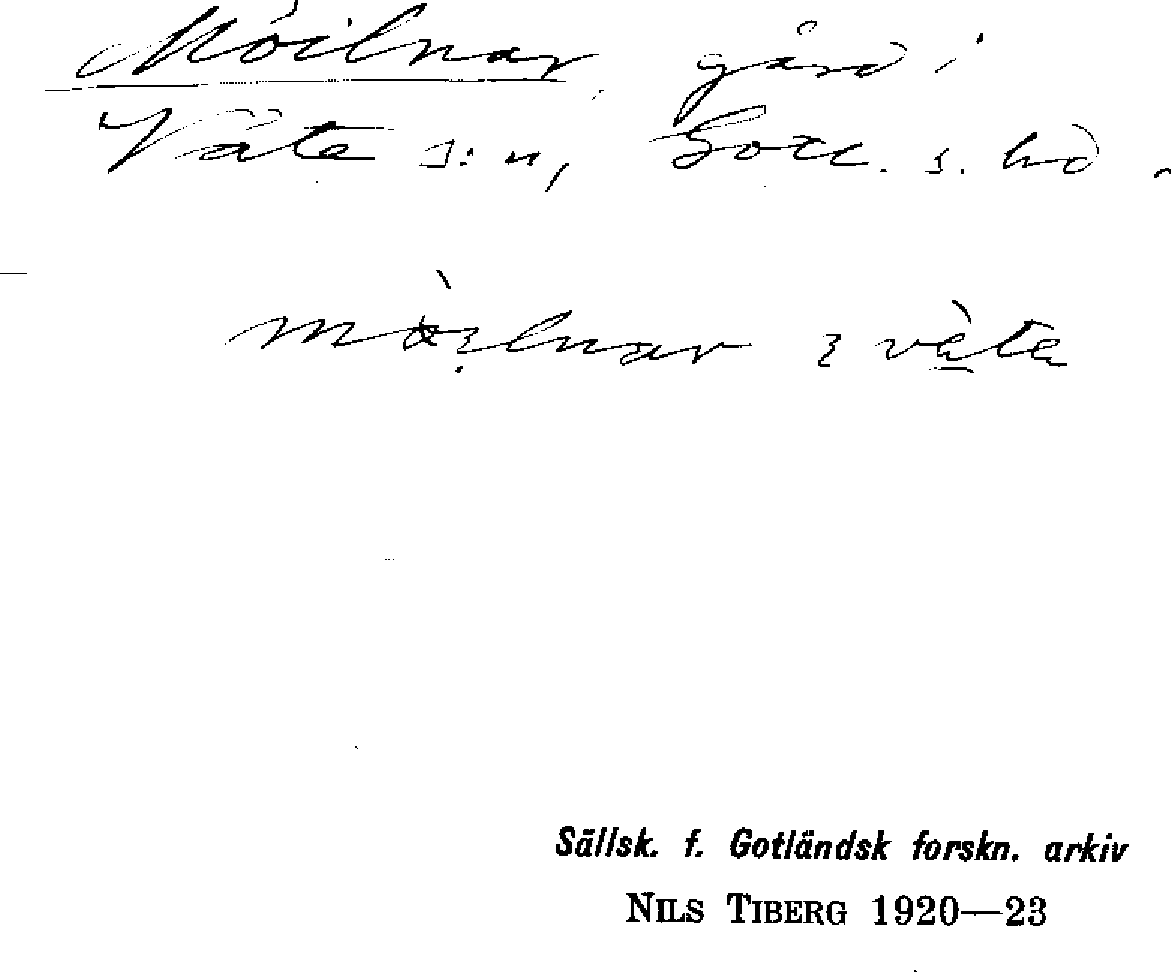 Möilnar gård i
Väte s:n, Gotl. s. hd.
i väte
Sällsk. f. Gotländsk forskn. arkiv
NILS TIBERG 1920—23